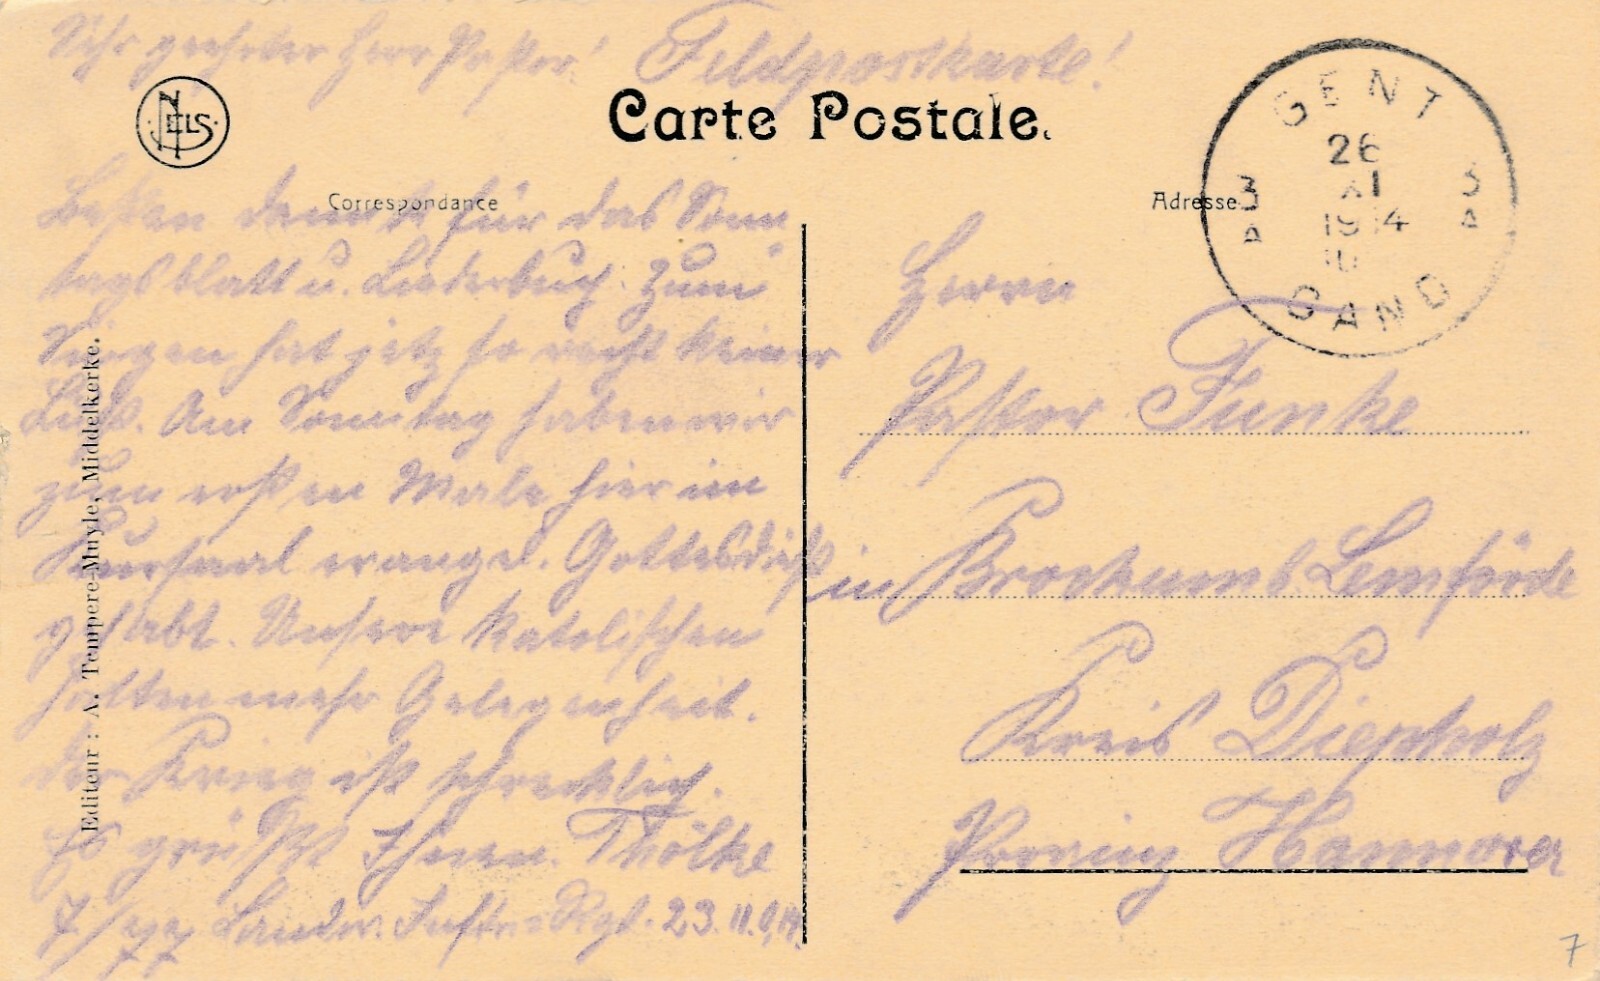 Sehr geehrter Herr Pastor! Feldpostkarte!
NELS
Carte Postale.
Correspondance
Adresse
GENT
26
XI
1914
3 A
3 A
GAND
Besten Dank für das Sonn-
tagsblatt u. Liederbuch. Zum
Singen hat jetz so recht keiner
Lust. Am Sonntag haben wir
zum ersten Male hier im
Kursaal evangel. Gottesdinst
gehabt. Unsere Katolischen
hatten mehr Gelegenheit.
der Krieg ist schrecklich.
Es grüßt Ihnen. Thölke
7/77 Landw. Inftr.-Rgt. 23.11.14.
Herrn
Pastor Funke
in Brockum b. Lemförde
Kreis Diepholz
Provinz Hannover
Editeur : A. Tempere-Muyle, Middelkerke.
7